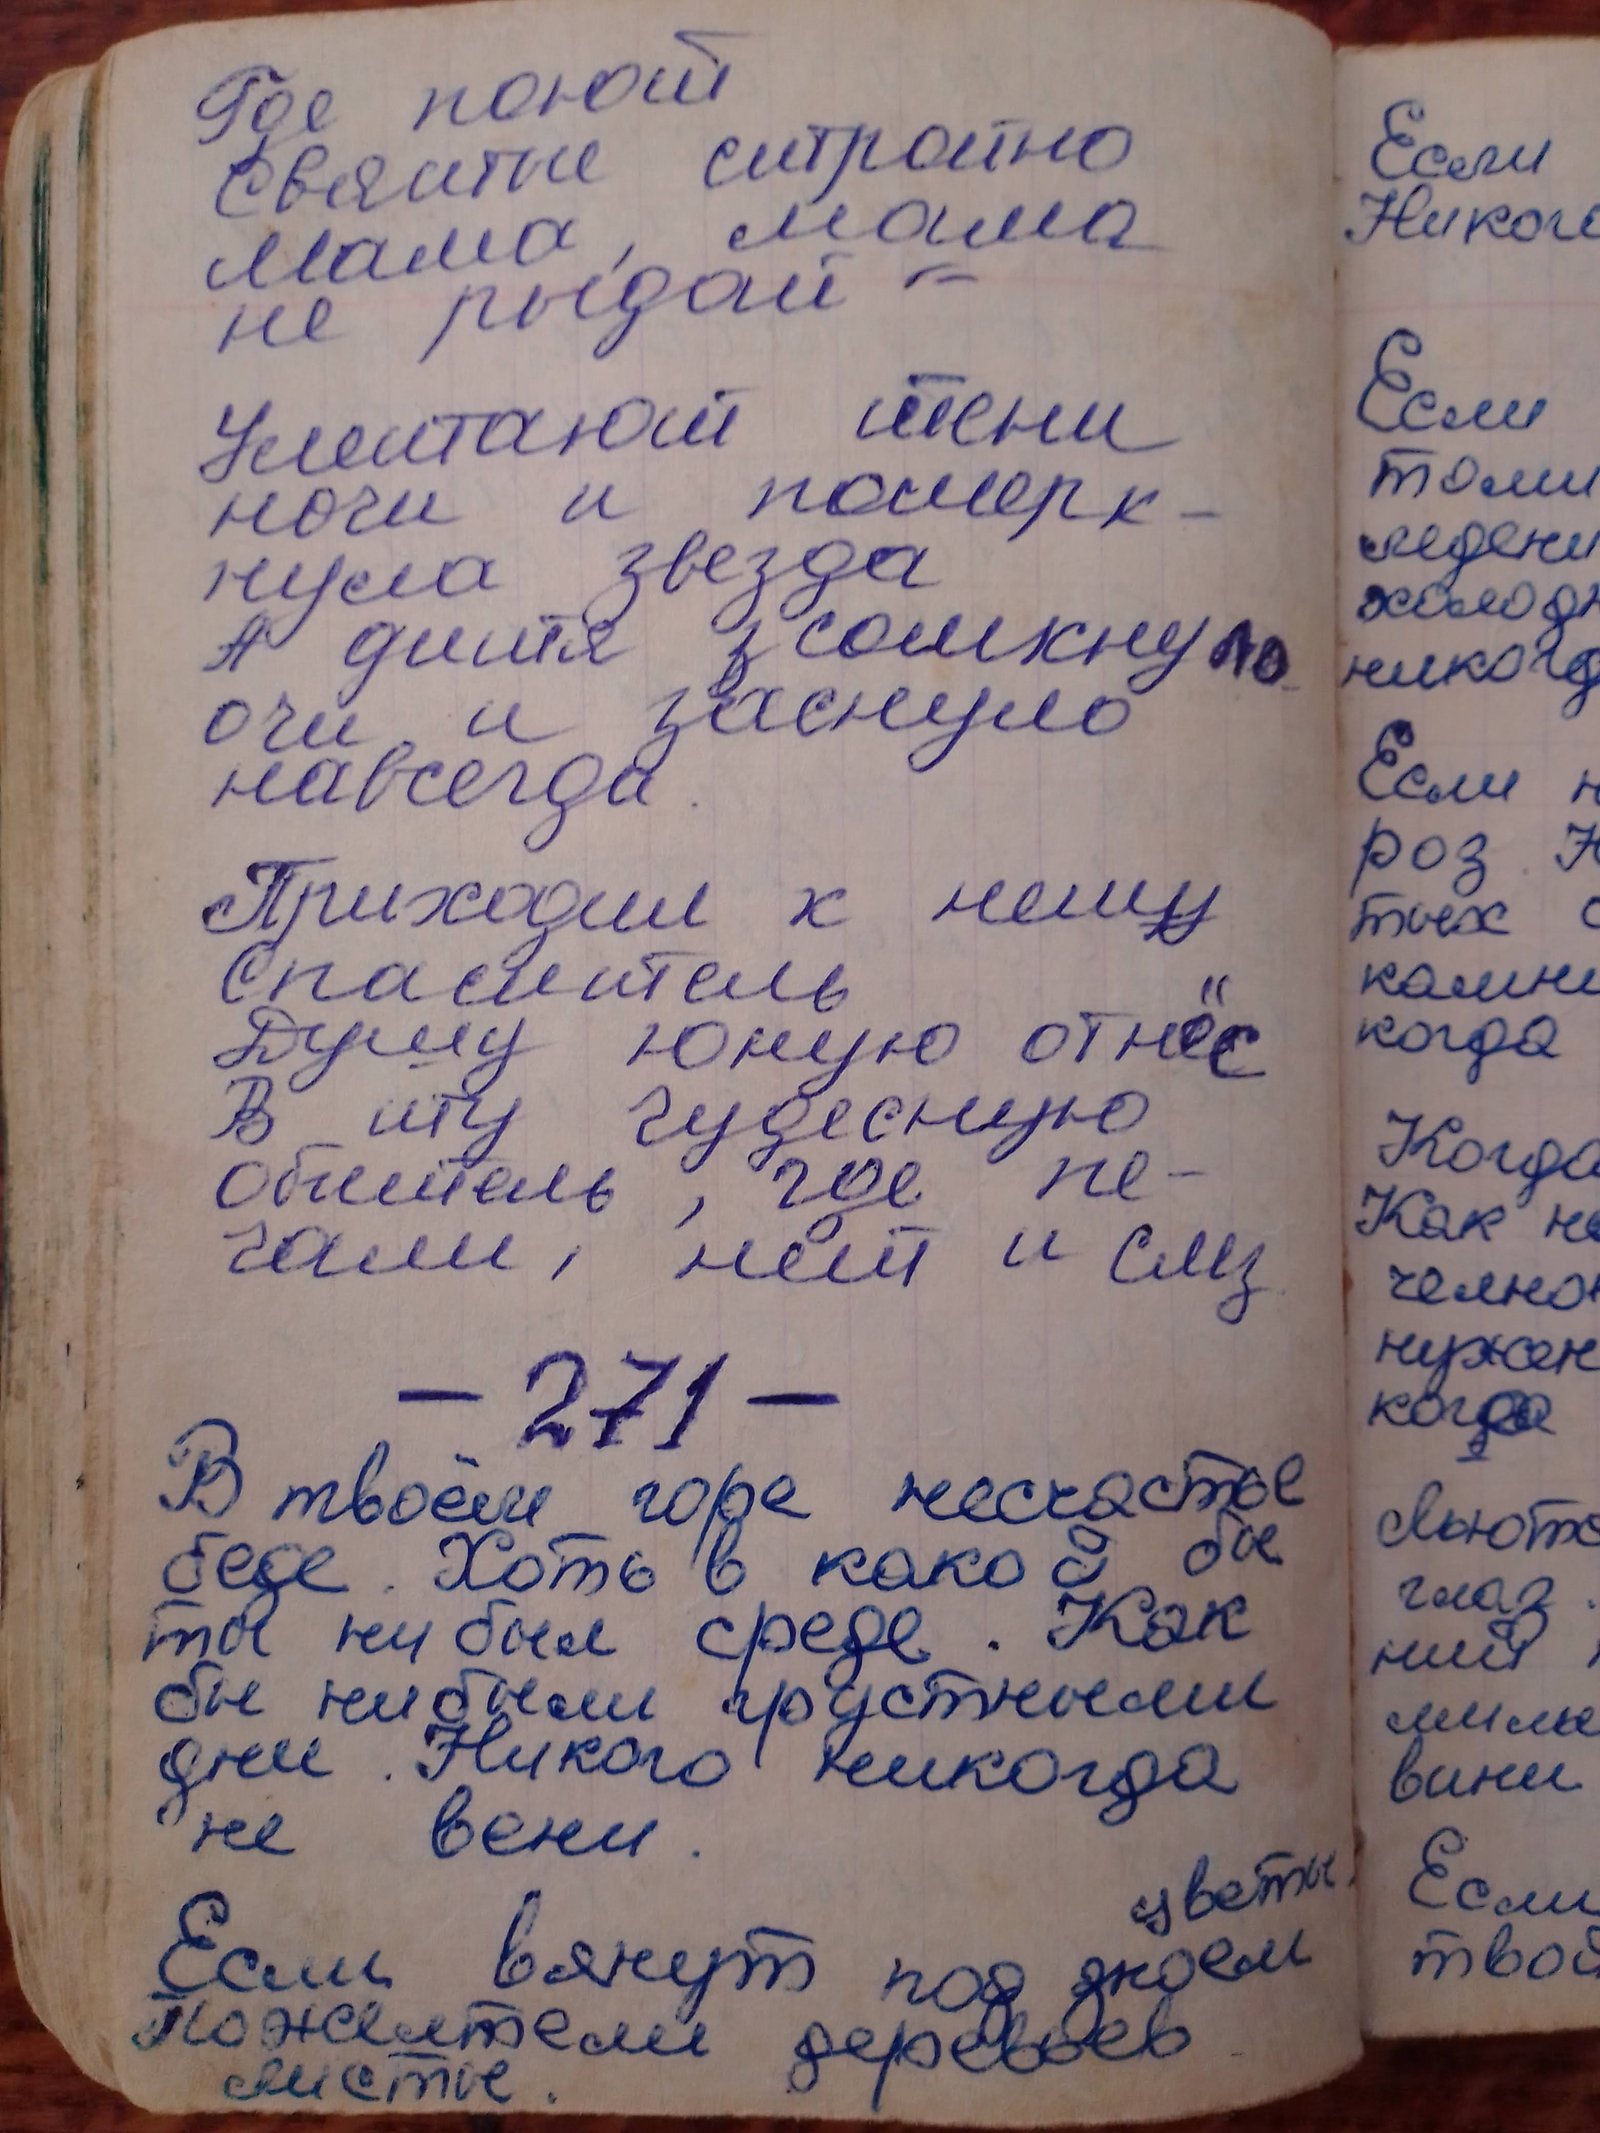 Где поют
Святые стройно
Мама, мама
не рыдай =
Улетают тени
ночи и померк-
нула звезда
А дитя сомкнуло
очи и заснуло
навсегда.
Приходил к нему
Спаситель
Душу юную отнёс
В ту чудесную
обитель, где пе-
чали, нет и слз
- 271 -
В твоём горе несчастье
беде. Хоть в какой бы
ты ни был среде. Как
бы ни были грустными
дни. Никого никогда
не вени.
цветы.
Если вянут под дноем
Пожелтели деревьев
листье.
Если
Никого
Если
томи
ледени
холодн
никогд
Если н
роз. Н
тых с
камни
когда
Когда
Как н
челнок
нужен
когда
Льютс
глаз.
ний
милы
вини
Если
твой